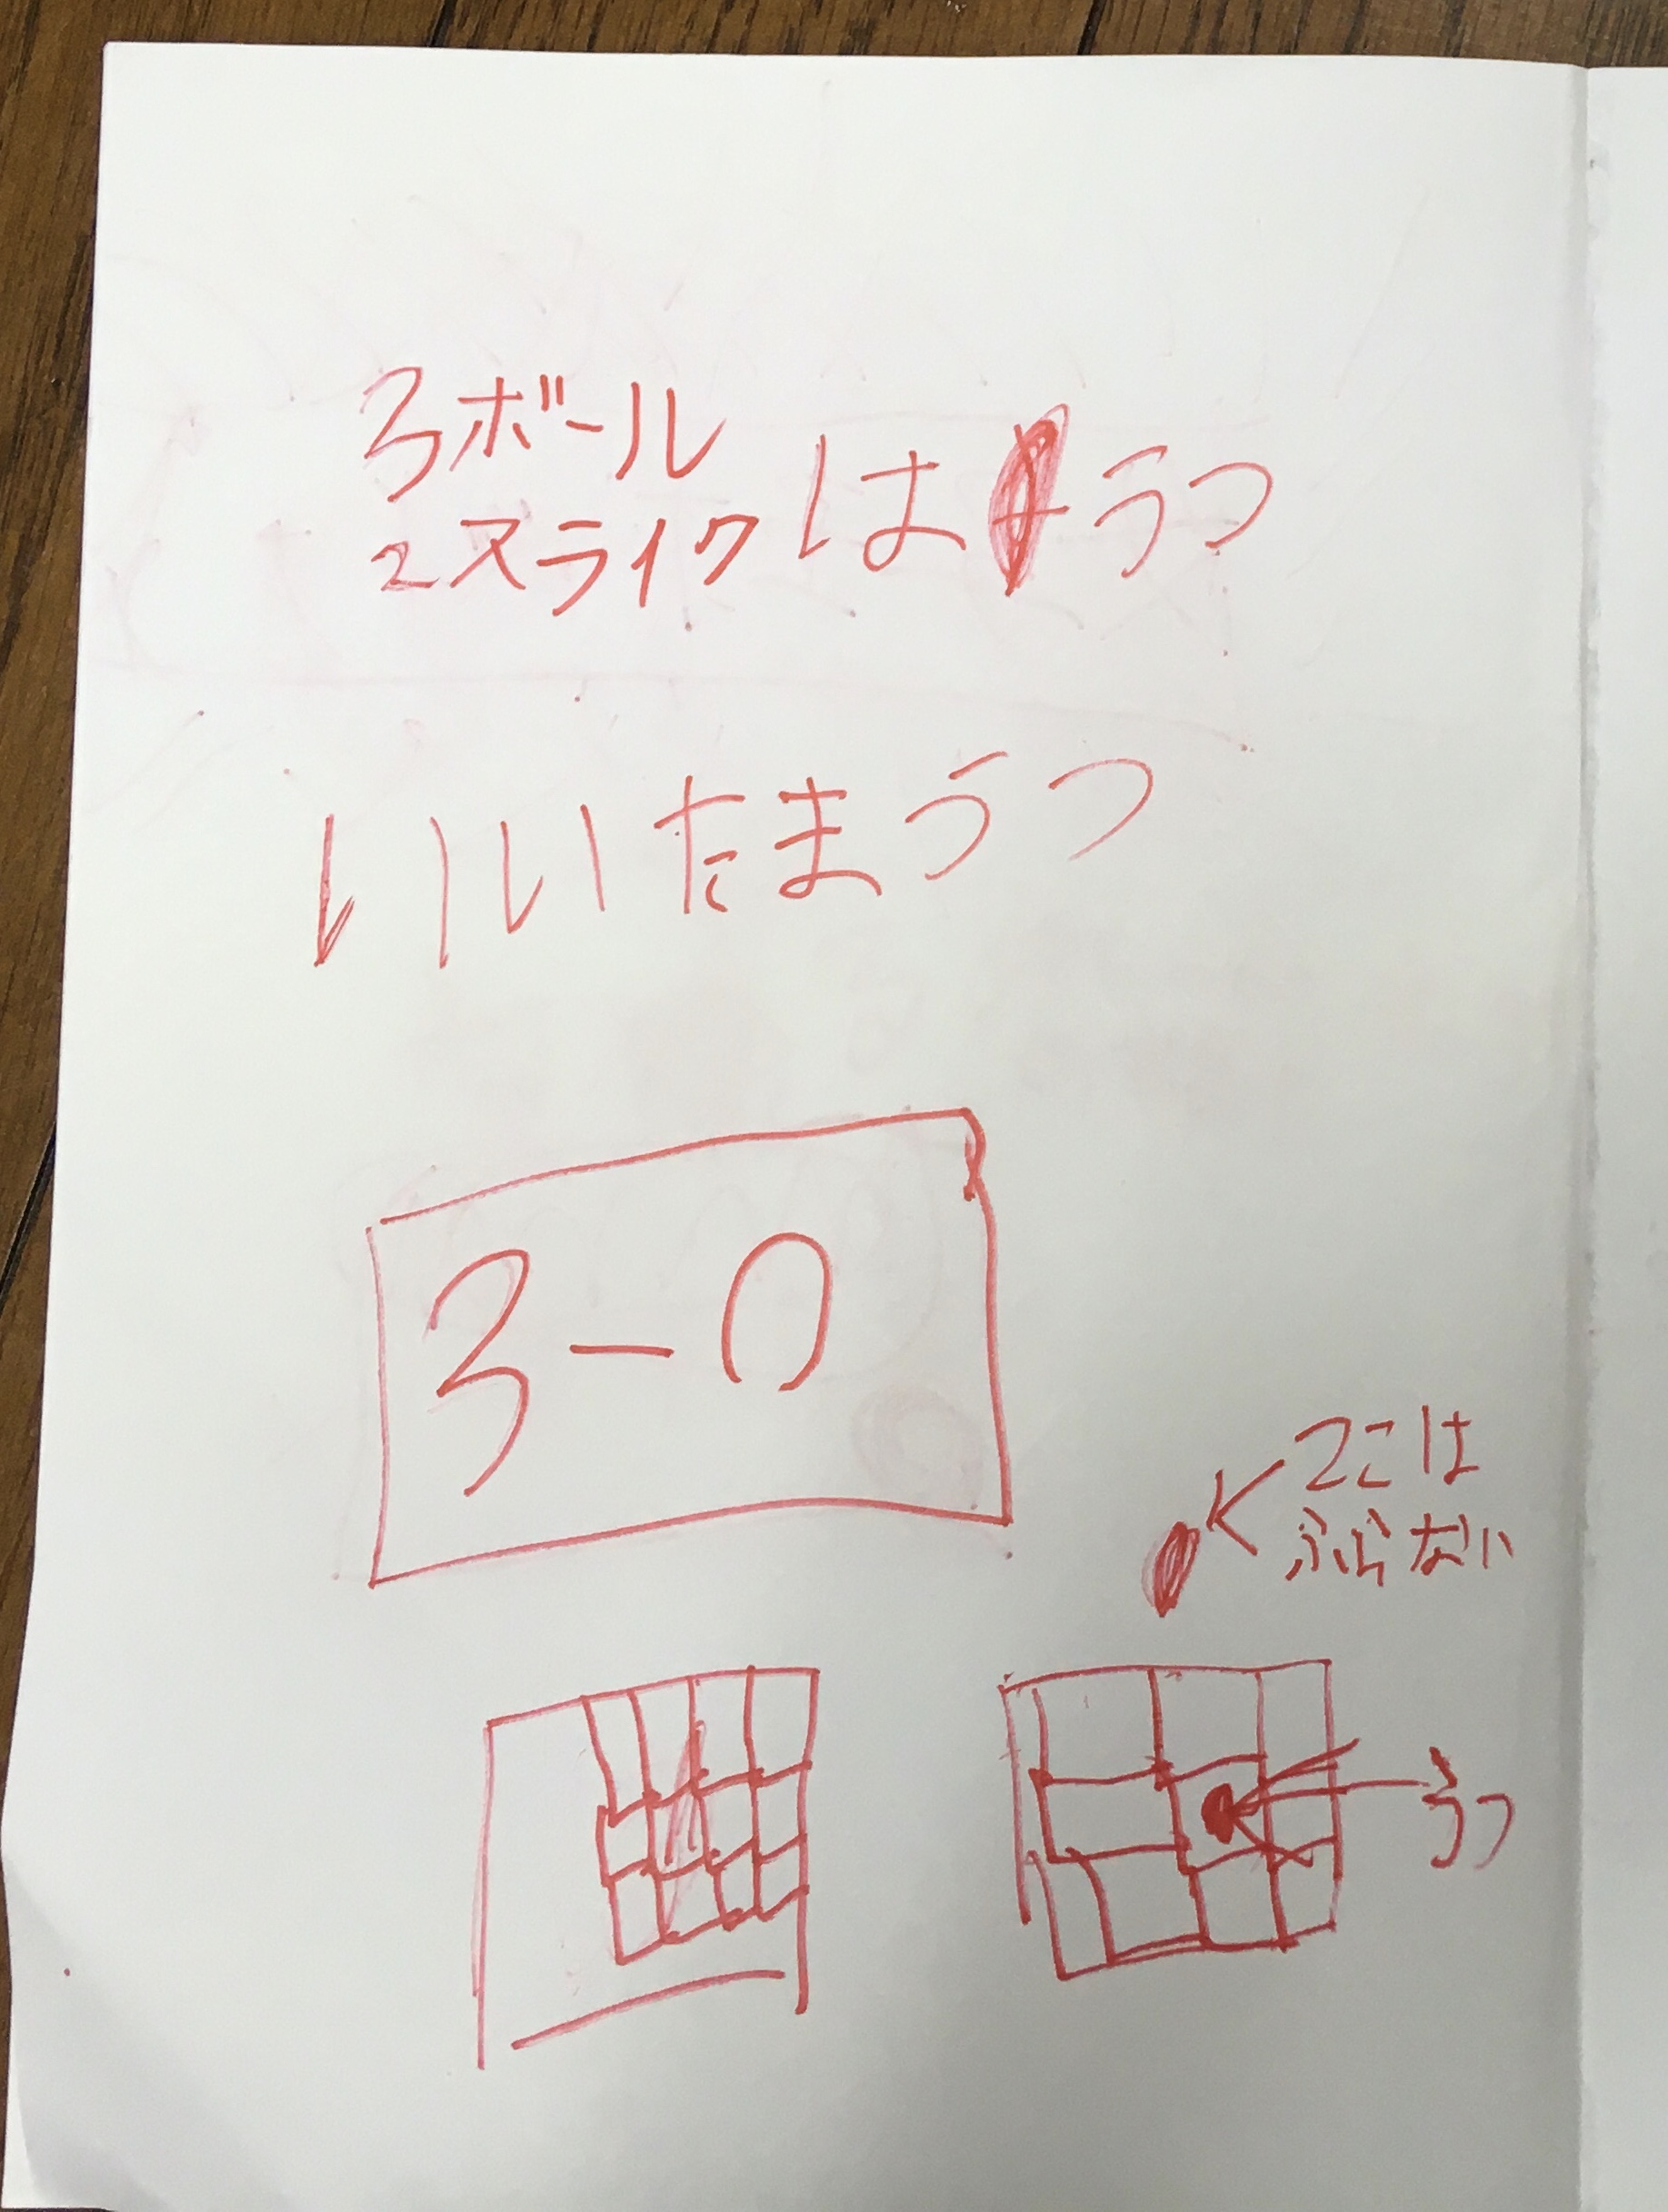 3ボール
2スライク は うつ
いいたまうつ
3-0
ここは
ふらない
うつ